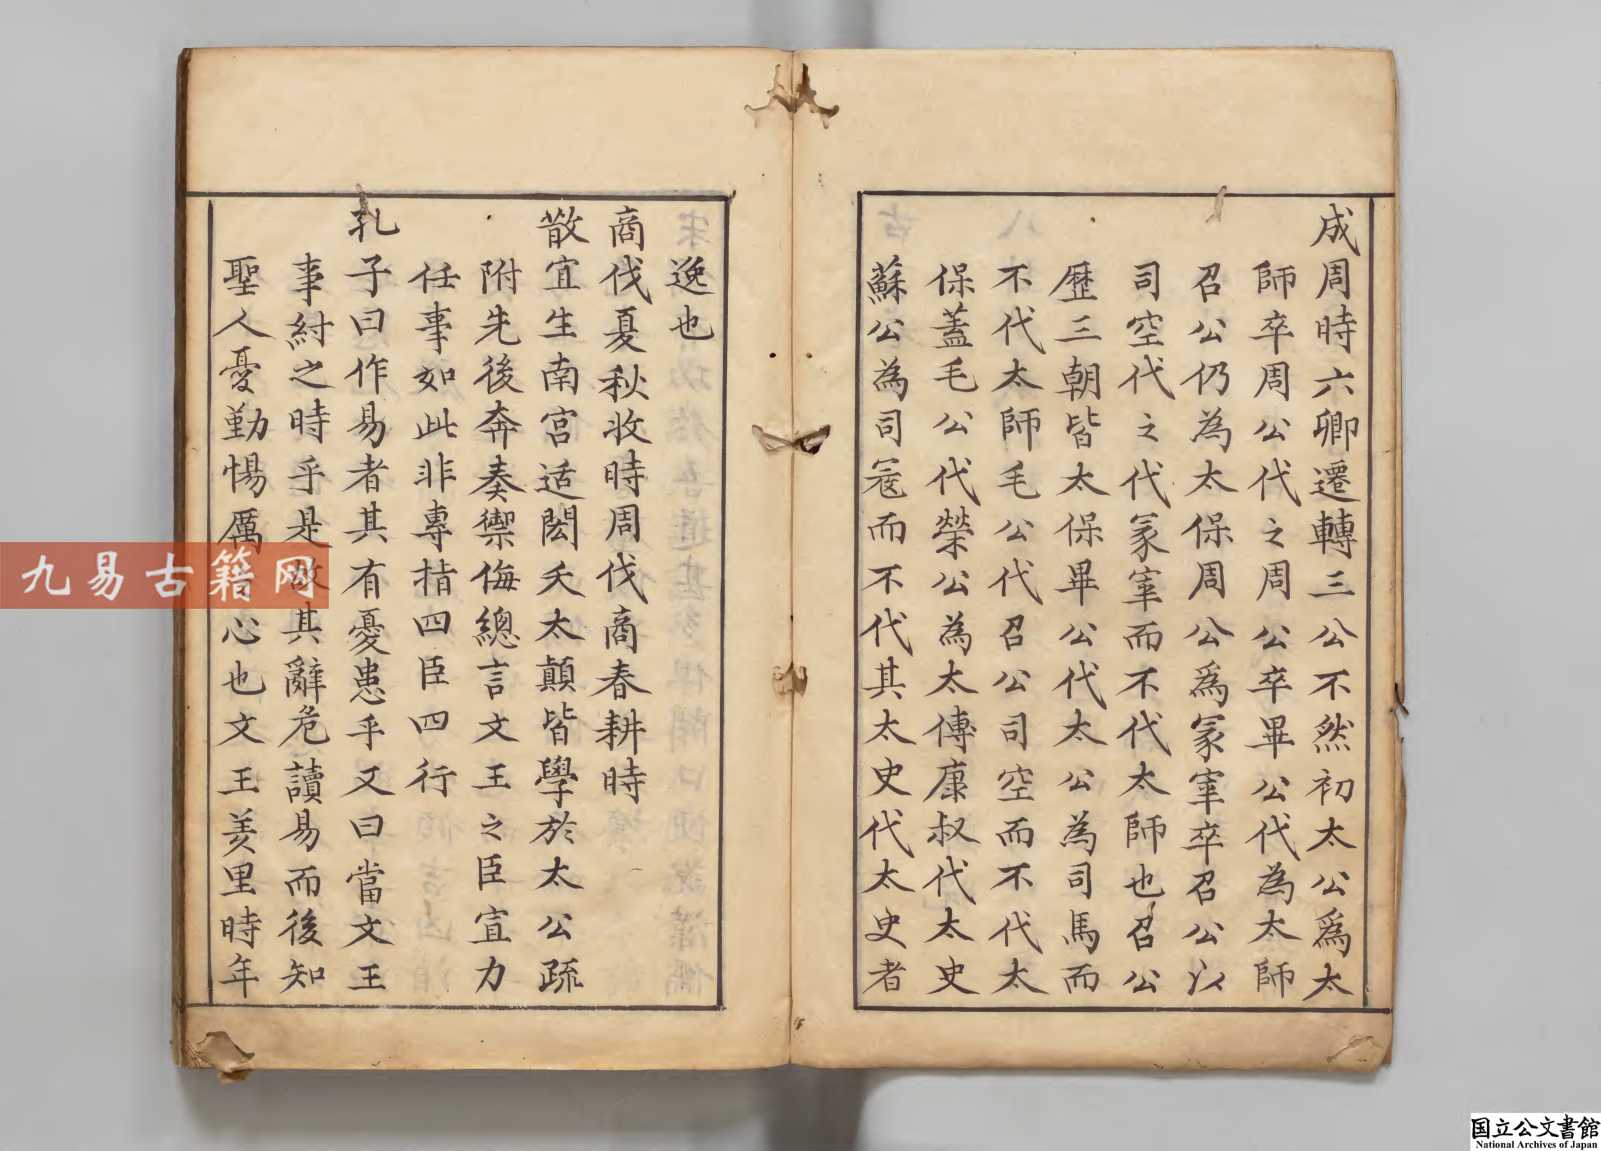 成周時六卿遷轉三公不然初太公爲太
師卒周公代之周公卒畢公代為太師
召公仍為太保周公爲冢宰卒召公以
司空代之代冢宰而不代太師也召公
歷三朝皆太保畢公代太公為司馬而
不代太師毛公代召公司空而不代太
保蓋毛公代榮公為太傅康叔代太史
蘇公為司寇而不代其太史代太史者
逸也
商伐夏秋收時周伐商春耕時
散宜生南宮适閎夭太顛皆學於太公疏
附先後奔奏禦侮總言文王之臣宣力
任事如此非專指四臣四行
孔子曰作易者其有憂患乎又曰當文王
事紂之時乎是故其辭危讀易而後知
聖人憂勤惕厲心也文王羑里時年
九易古籍网
国立公文書館
National Archives of Japan